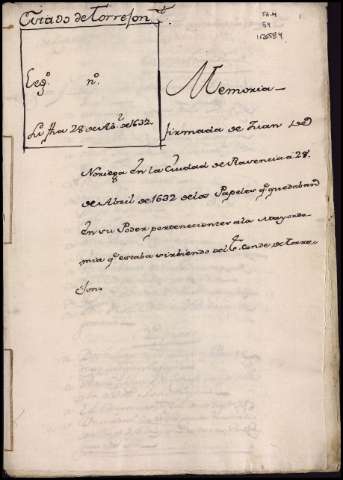 Estado de Torrejon
Leg.º n.º
Su fha 28 de Ab.l de 1632.
Memoria
firmada de Juan de
Noriega en la Ciudad de Plasencia a 28.
de Abril de 1632 de los Papeles q.e quedaban
en su Poder pertenecientes a la Mayordo
mia q.e estaba sirbiendo del S.r Conde de Torre
jon